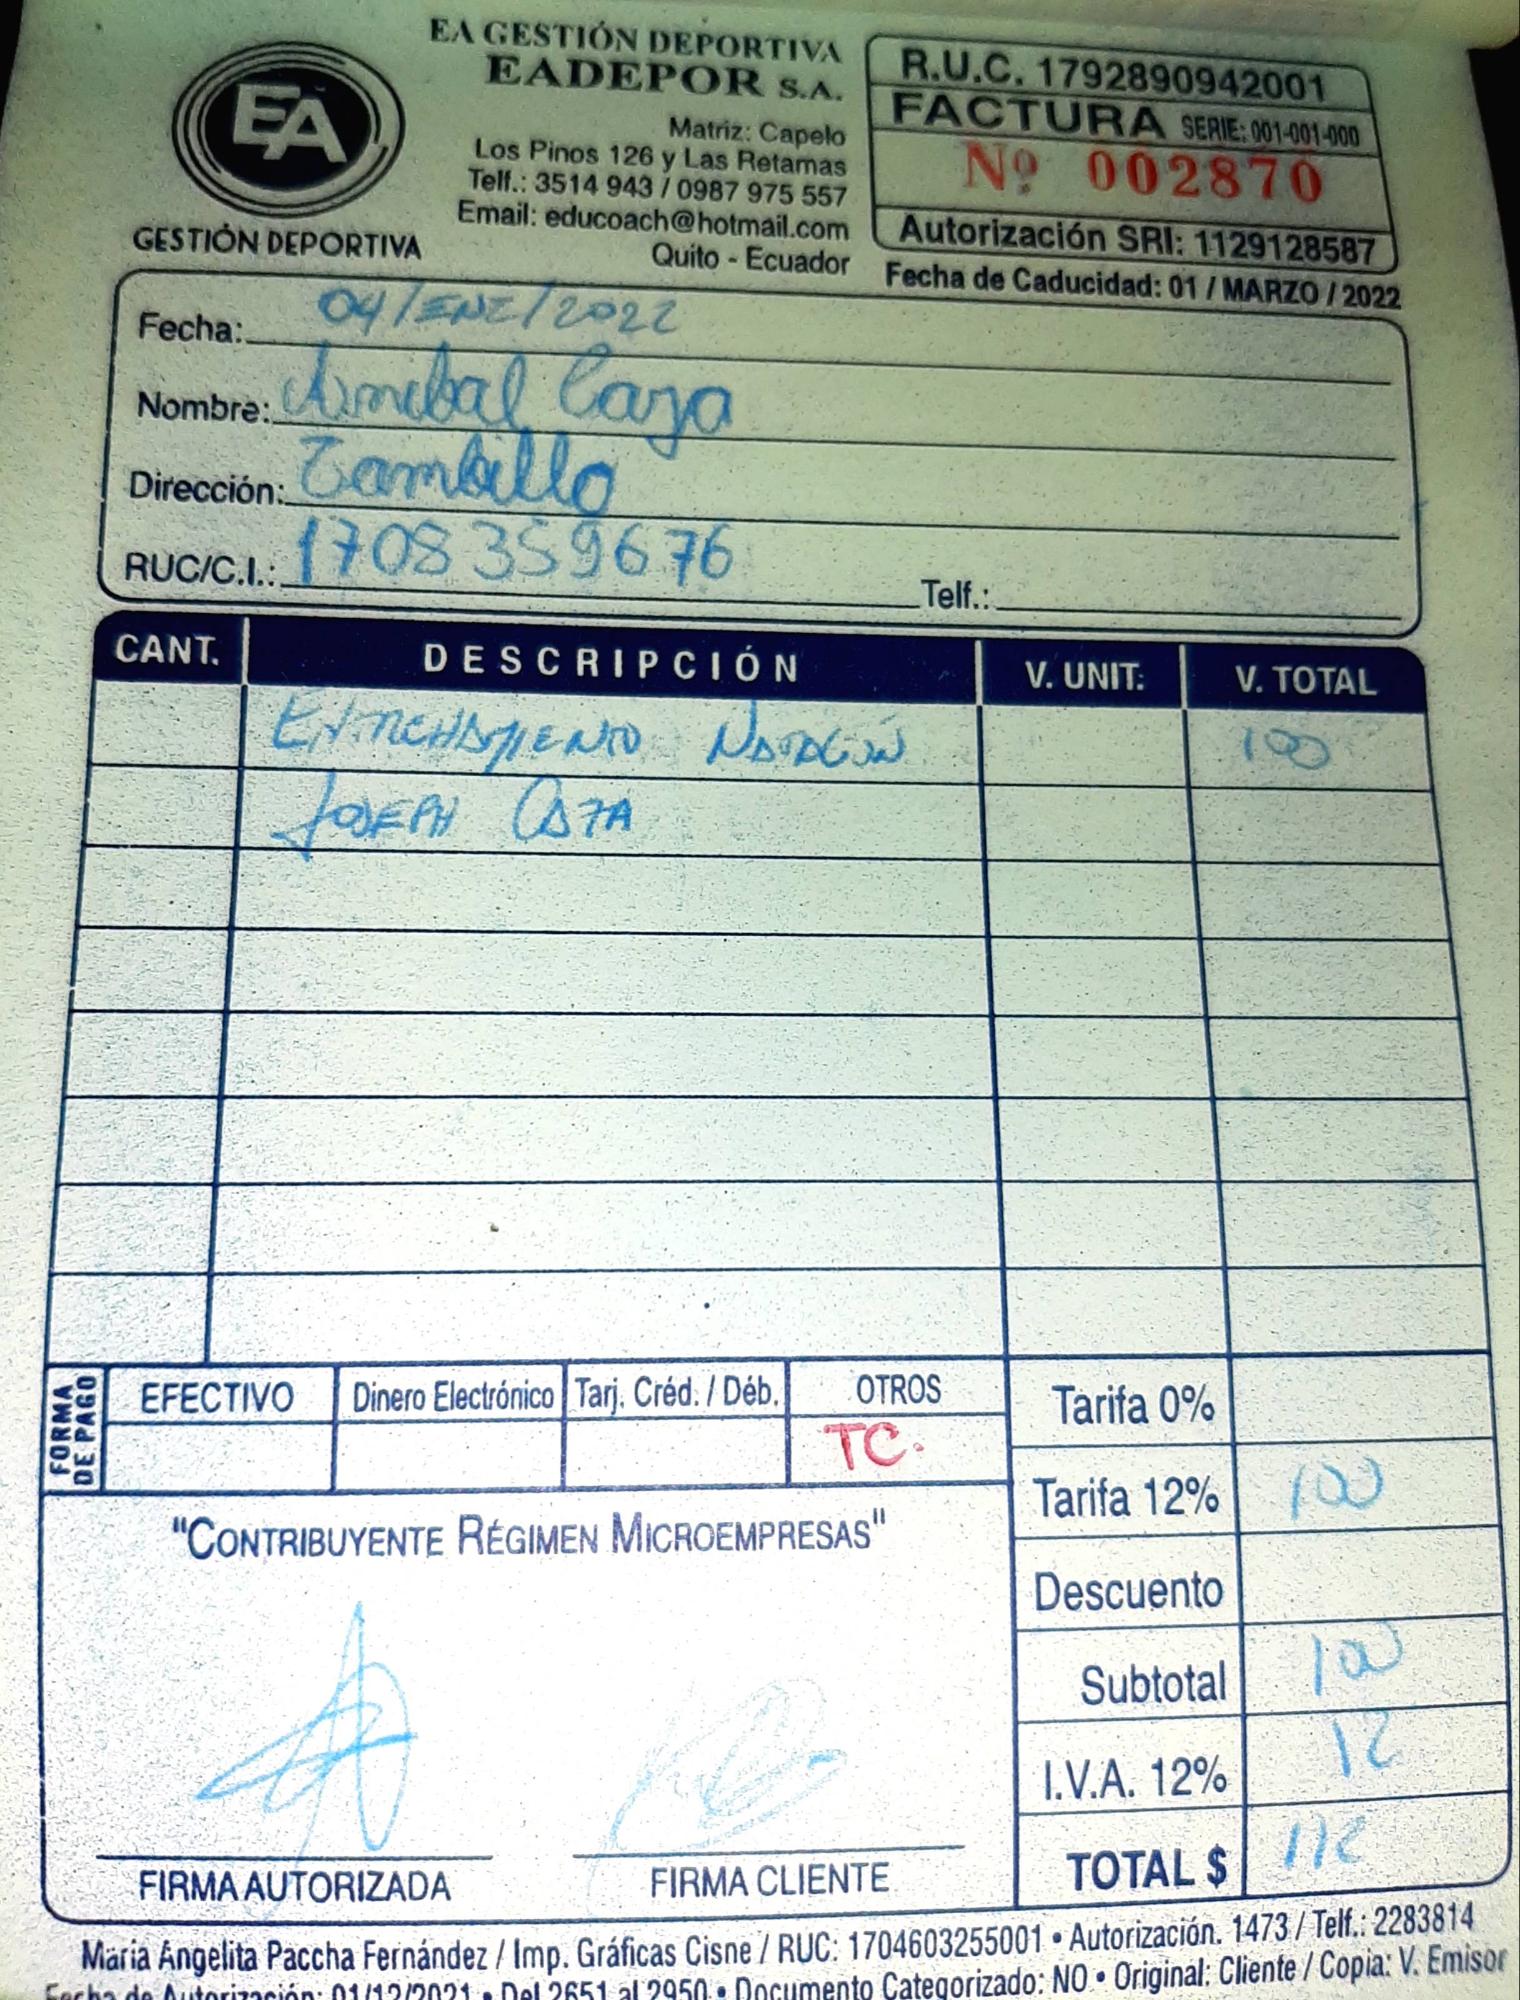 EA GESTIÓN DEPORTIVA
EADEPOR S.A.
EA
GESTIÓN DEPORTIVA
Matriz: Capelo
Los Pinos 126 y Las Retamas
Telf.: 3514 943 / 0987 975 557
Email: educoach@hotmail.com
Quito - Ecuador
R.U.C. 1792890942001
FACTURA SERIE: 001-001-000
Nº 002870
Autorización SRI: 1129128587
Fecha de Caducidad: 01 / MARZO / 2022
Fecha: 04/ENE/2022
Nombre: Anibal Caza
Dirección: Tambillo
RUC/C.I.: 1708359676 Telf.:
CANT. DESCRIPCIÓN V. UNIT. V. TOTAL
ENTRENAMIENTO NATACIÓN 100
JOSEPH CAZA
FORMA DE PAGO
EFECTIVO Dinero Electrónico Tarj. Créd. / Déb. OTROS
TC.
Tarifa 0%
Tarifa 12% 100
Descuento
Subtotal 100
I.V.A. 12% 12
TOTAL $ 112
"CONTRIBUYENTE RÉGIMEN MICROEMPRESAS"
FIRMA AUTORIZADA FIRMA CLIENTE
Maria Angelita Paccha Fernández / Imp. Gráficas Cisne / RUC: 1704603255001 • Autorización. 1473 / Telf.: 2283814
Fecha de Autorización: 01/12/2021 • Del 2651 al 2950 • Documento Categorizado: NO • Original: Cliente / Copia: V. Emisor